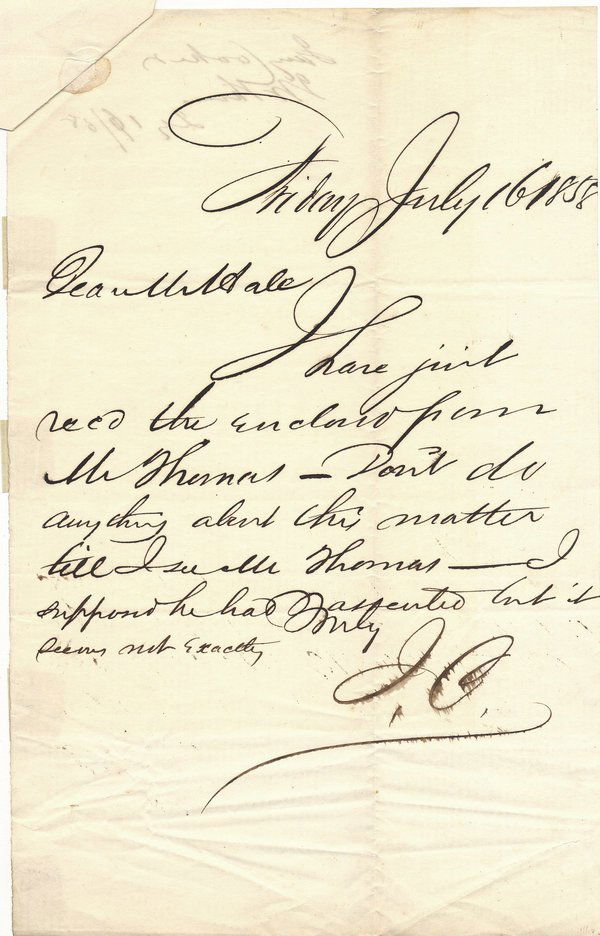 Friday July 16 1858
Dear Mr Hale
I have just
recd the enclosed from
Mr Thomas — Don't do
anything about this matter
till I see Mr Thomas — I
supposed he had assented but it
seems not exactly
Truly
J. C.